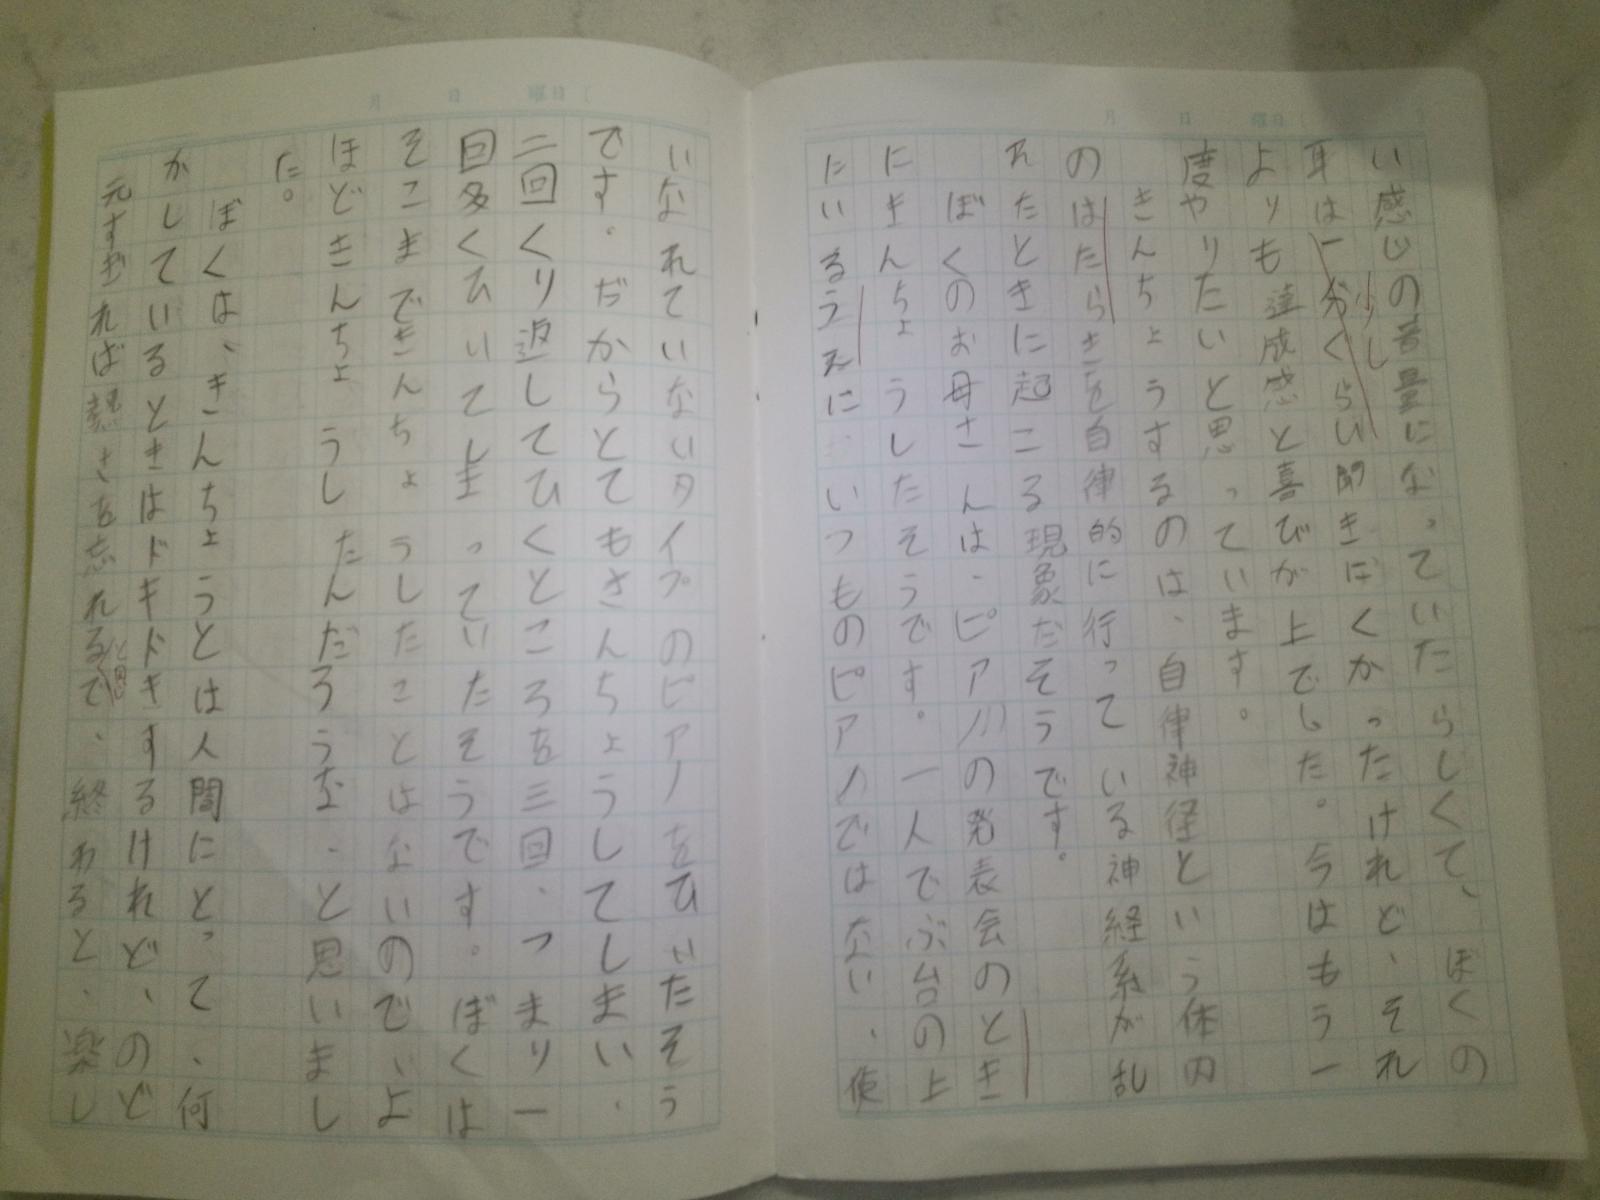 月 日 曜日
い感じの音量になっていたらしくて、ぼくの
少し
耳は十分くらい聞きにくかったけれど、それ
よりも達成感と喜びが上でした。今はもう一
度やりたいと思っています。
きんちょうするのは、自律神経という体内
のはたらきを自律的に行っている神経系が乱
れたときに起こる現象だそうです。
ぼくのお母さんは、ピアノの発表会のとき
にきんちょうしたそうです。一人でぶ台の上
たいるうえにいつものピアノではない、使
月 日 曜日
いなれていないタイプのピアノをひいたそう
です。だからとてもきんちょうしてしまい、
二回くり返してひくところを三回、つまり一
回多くひいてしまっていたそうです。ぼくは
そこまできんちょうしたことはないので、よ
ほどきんちょうしたんだろうな、と思いまし
た。
ぼくは、きんちょうとは人間にとって、何
かしているときはドキドキするけれど、のど
元すぎれば熱さを忘れるで、終わると、楽し